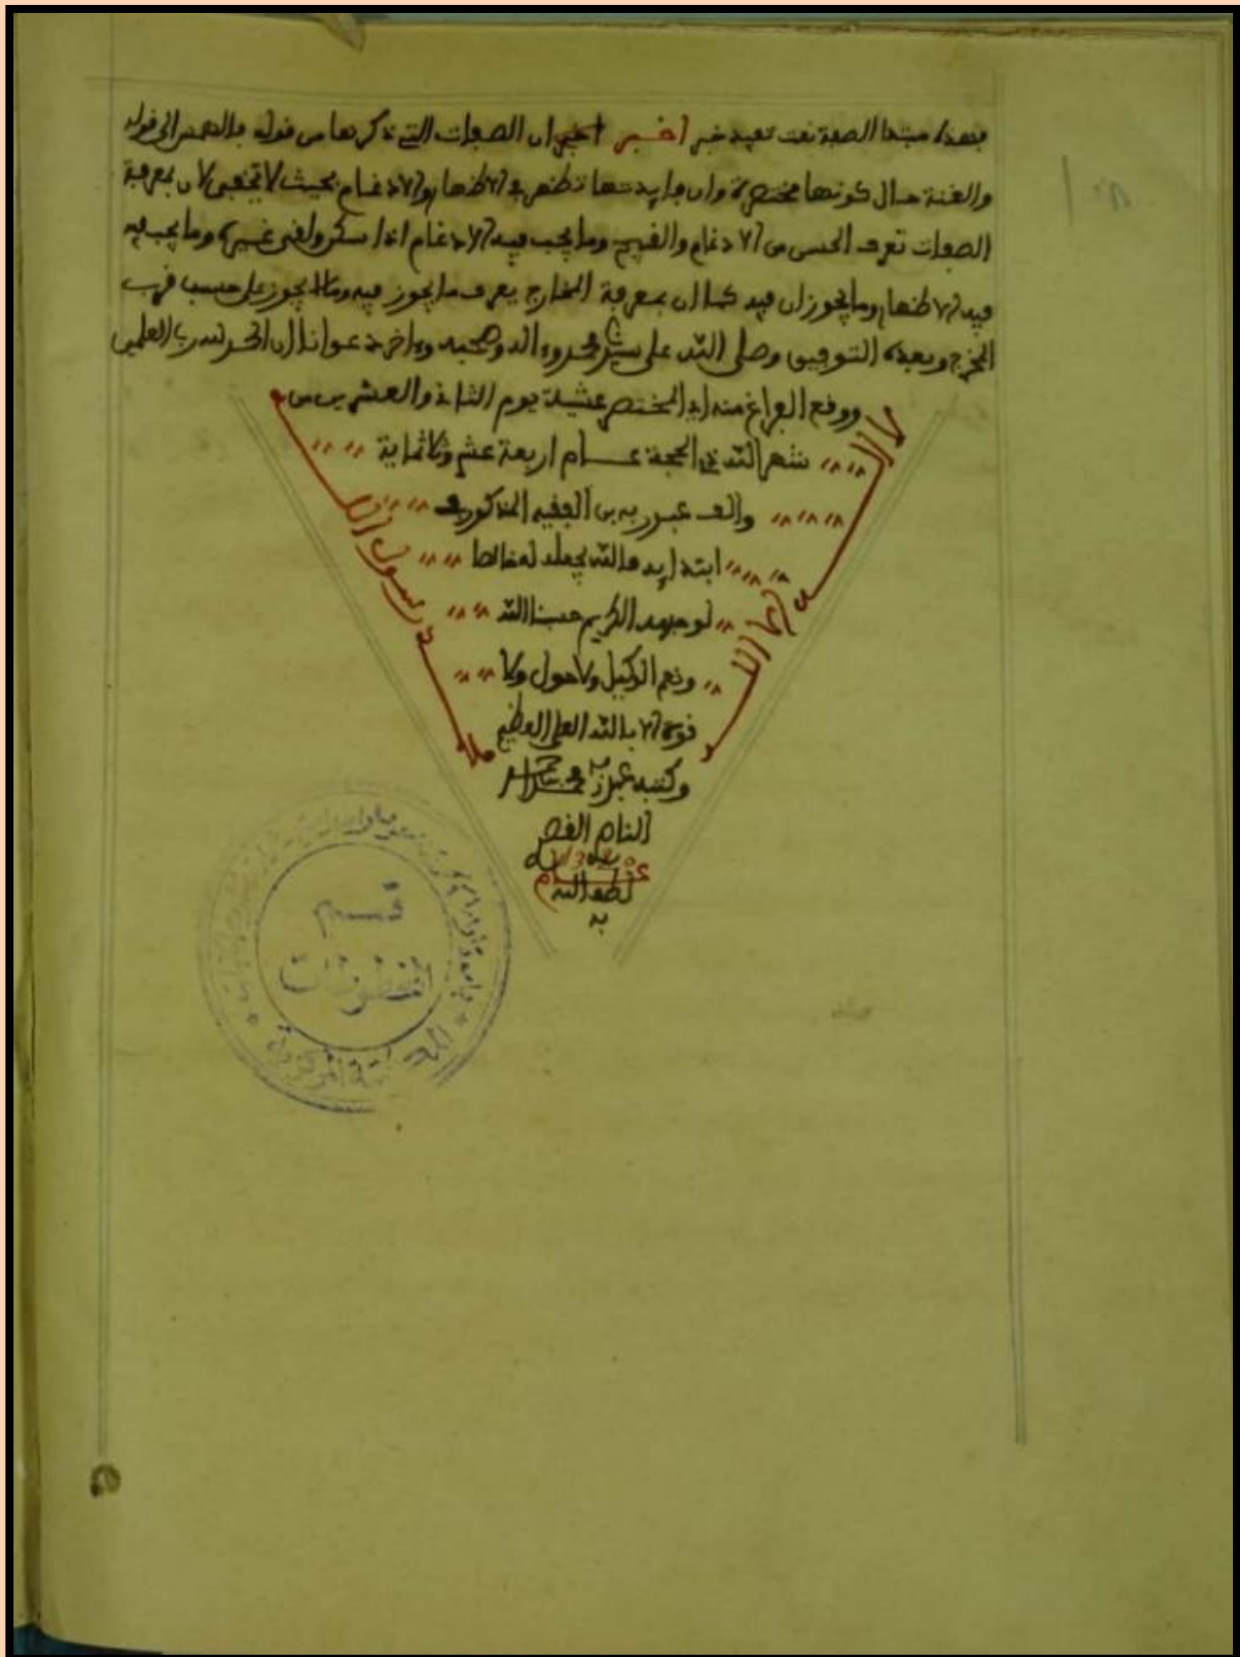 فهذه مبتدا الصفة نعت تفيد خبر اخبر ان الصفات التي ذكرها من قوله فالهمس الى قوله
والغنة حال كونها مختصرة وان فايدتها تظهر في الاظهار والادغام بحيث لا تخفى لان بمعرفة
الصفات تعرف الحسن من الادغام والقبيح وما يجب فيه الادغام اذا سكن ولقى غيره وما يجب فيه
فيه الاظهار وما يجوزان فيه كما ان بمعرفة المخارج يعرف ما يجوز فيه وما لا يجوز على حسب قرب
المخرج وبعده التوفيق وصلى الله على سيدنا محمد وءاله وصحبه وءاخر دعوانا ان الحمد لله رب العلمين
ووقع الفراغ منه اي المختصر عشية يوم الثاني والعشرين من
شهر الله ذي الحجة عام اربعة عشر وثلاثماية
والف عبد ربه بن الفقيه المذكور في
ابتدايه والله يجعله خالصا
لوجهه الكريم حسبنا الله
ونعم الوكيل ولا حول ولا
قوة الا بالله العلي العظيم
وكتبه عبد ربه محمد
عام
لطف الله
به
لا اله الا الله
محمد رسول الله
قسم
المخطوطات
المكتبة المركزية